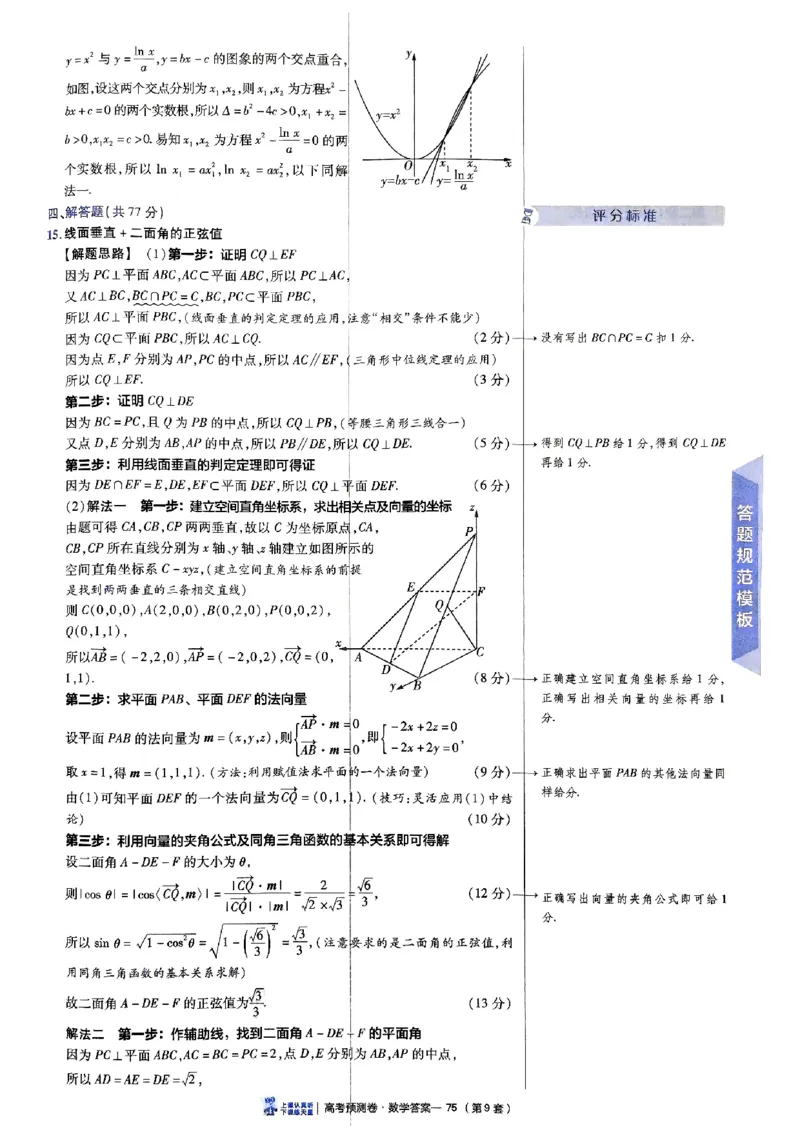 y=x²与y=ln x/a,y=bx-c的图象的两个交点重合,
如图,设这两个交点分别为x₁,x₂,则x₁,x₂为方程x²-
bx+c=0的两个实数根,所以Δ=b²-4c>0,x₁+x₂=
b>0,x₁x₂=c>0.易知x₁,x₂为方程x²-ln x/a=0的两
个实数根,所以ln x₁=ax₁²,ln x₂=ax₂²,以下同解
法一.
y
y=x²
O x₁ x₂ x
y=bx-c y=ln x/a
四、解答题(共77分)
评分标准
15.线面垂直+二面角的正弦值
【解题思路】 (1)第一步:证明CQ⊥EF
因为PC⊥平面ABC,AC⊂平面ABC,所以PC⊥AC,
又AC⊥BC,BC∩PC=C,BC,PC⊂平面PBC,
所以AC⊥平面PBC,(线面垂直的判定定理的应用,注意“相交”条件不能少)
因为CQ⊂平面PBC,所以AC⊥CQ. (2分)→没有写出BC∩PC=C扣1分.
因为点E,F分别为AP,PC的中点,所以AC∥EF,(三角形中位线定理的应用)
所以CQ⊥EF. (3分)
第二步:证明CQ⊥DE
因为BC=PC,且Q为PB的中点,所以CQ⊥PB,(等腰三角形三线合一)
又点D,E分别为AB,AP的中点,所以PB∥DE,所以CQ⊥DE. (5分)→得到CQ⊥PB给1分,得到CQ⊥DE
再给1分.
第三步:利用线面垂直的判定定理即可得证
因为DE∩EF=E,DE,EF⊂平面DEF,所以CQ⊥平面DEF. (6分)
(2)解法一 第一步:建立空间直角坐标系,求出相关点及向量的坐标
由题可得CA,CB,CP两两垂直,故以C为坐标原点,CA,
CB,CP所在直线分别为x轴、y轴、z轴建立如图所示的
空间直角坐标系C-xyz,(建立空间直角坐标系的前提
是找到两两垂直的三条相交直线)
则C(0,0,0),A(2,0,0),B(0,2,0),P(0,0,2),
Q(0,1,1),
所以AB→=(-2,2,0),AP→=(-2,0,2),CQ→=(0,
1,1). (8分)→正确建立空间直角坐标系给1分,
正确写出相关向量的坐标再给1
分.
z
P
E
F
Q
x
A
C
D
y
B
答题规范模板
第二步:求平面PAB、平面DEF的法向量
设平面PAB的法向量为m=(x,y,z),则{AP→·m=0 AB→·m=0,即{-2x+2z=0 -2x+2y=0,
取x=1,得m=(1,1,1).(方法:利用赋值法求平面的一个法向量) (9分)→正确求出平面PAB的其他法向量同
样给分.
由(1)可知平面DEF的一个法向量为CQ→=(0,1,1).(技巧:灵活应用(1)中结
论) (10分)
第三步:利用向量的夹角公式及同角三角函数的基本关系即可得解
设二面角A-DE-F的大小为θ,
则|cos θ|=|cos⟨CQ→,m⟩|=|CQ→·m|/|CQ→|·|m|=2/√2×√3=√6/3, (12分)→正确写出向量的夹角公式即可给1
分.
所以sin θ=√1-cos²θ=√1-(√6/3)²=√3/3,(注意要求的是二面角的正弦值,利
用同角三角函数的基本关系求解)
故二面角A-DE-F的正弦值为√3/3. (13分)
解法二 第一步:作辅助线,找到二面角A-DE-F的平面角
因为PC⊥平面ABC,AC=BC=PC=2,点D,E分别为AB,AP的中点,
所以AD=AE=DE=√2,
上课认真听
下课练天星
高考预测卷·数学答案—75(第9套)